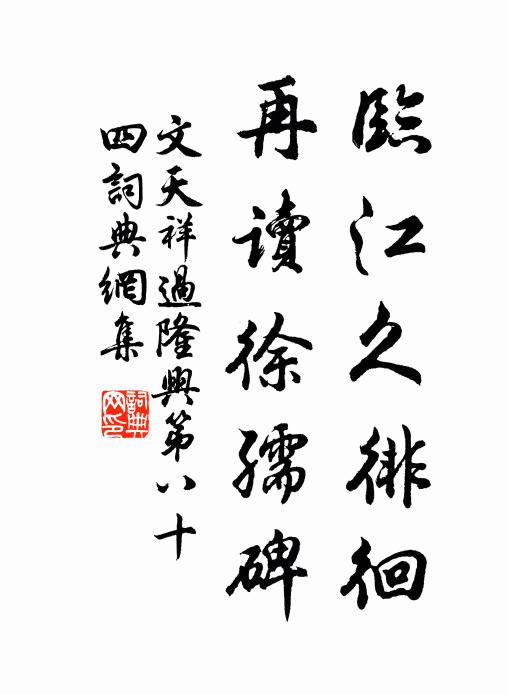 臨江久徘徊
再读徐孺碑
文天祥過隆興第八十
四詞典網集
詞典
网印